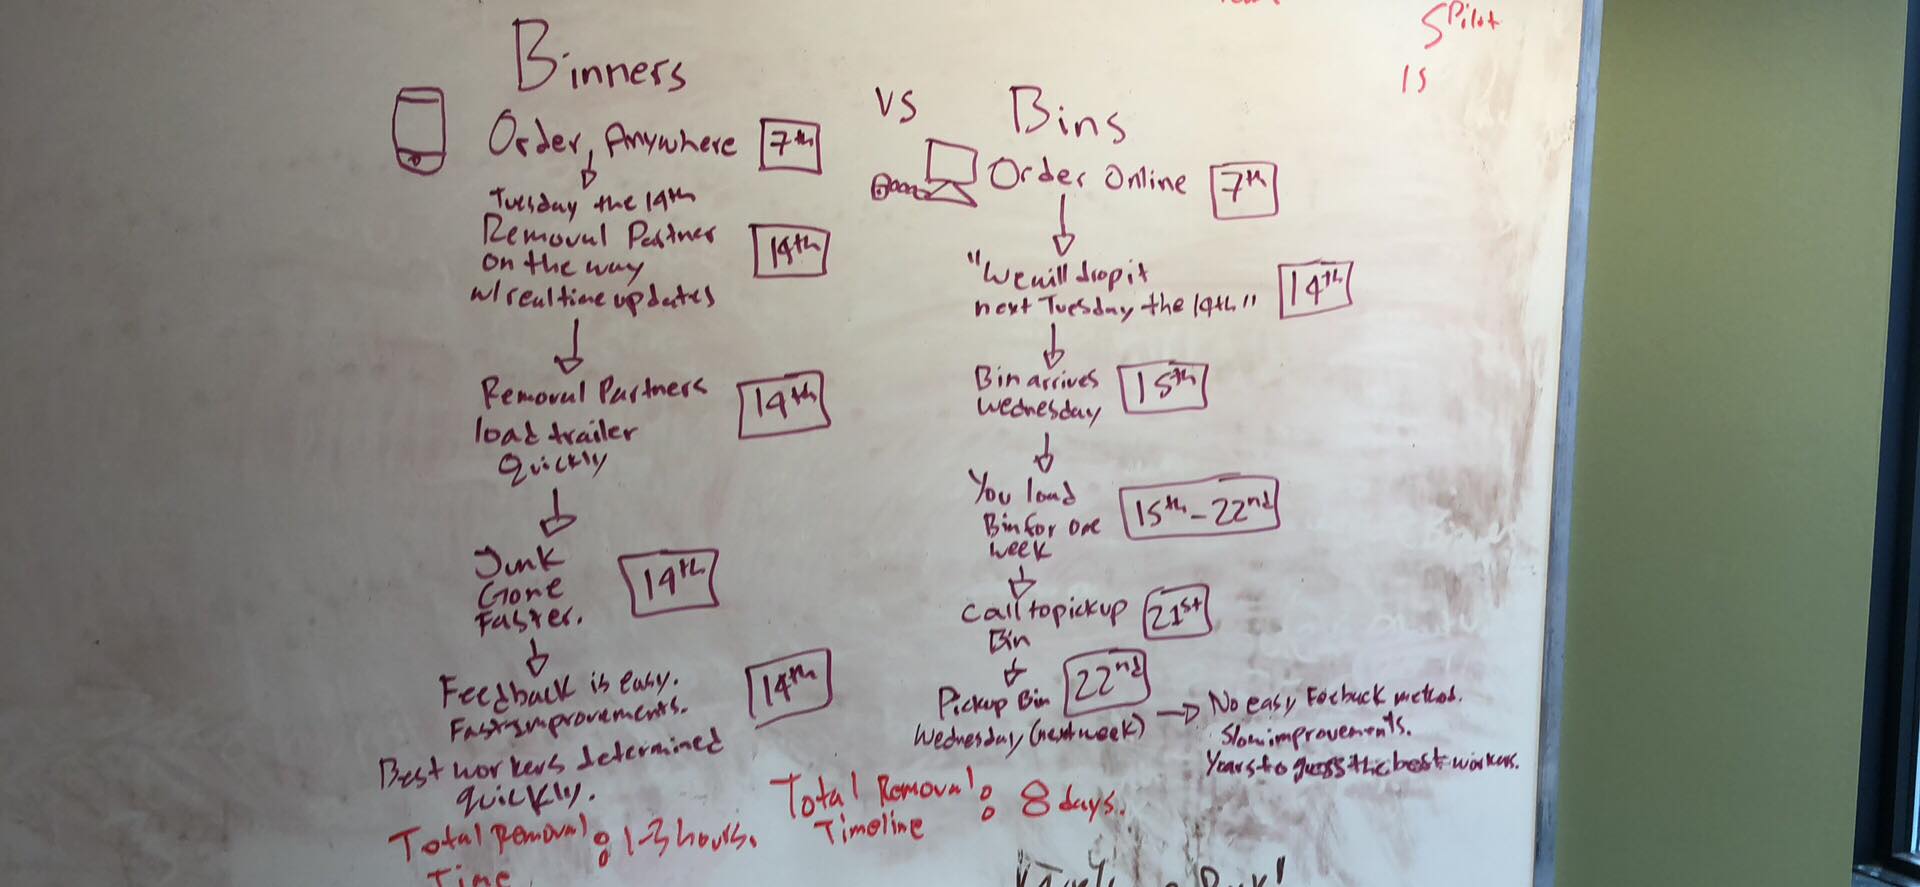 S Pilot
IS
Binners
vs
Bins
Order Anywhere 7th
Tuesday the 14th
Removal Partner 14th
on the way
w/ realtime updates
Removal Partners 14th
load trailer
Quickly
Junk 14th
Gone
Faster.
Feedback is easy. 14th
Fast improvements.
Best workers determined
quickly.
Total Removal: 1-3 hours.
Time
Order Online 7th
"We will drop it 14th
next Tuesday the 14th"
Bin arrives 15th
Wednesday
You load 15th - 22nd
Bin for one
week
Call to pickup 21st
Bin
Pickup Bin 22nd
Wednesday (next week)
No easy Feeback method.
Slow improvements.
Years to guess the best workers.
Total Removal: 8 days.
Timeline